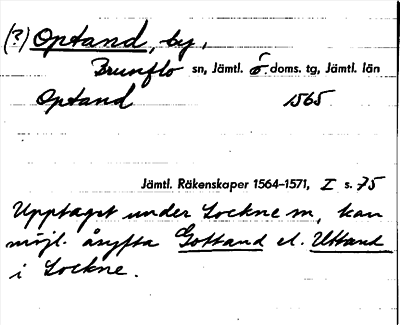 (?) Optand, by,
Brunflo sn, Jämtl. ö. doms. tg, Jämtl. län
Optand 1565
Jämtl. Räkenskaper 1564–1571, I s. 75
Upptaget under Lockne sn, kan
möjl. åsyfta Gottand el. Uttand
i Lockne.